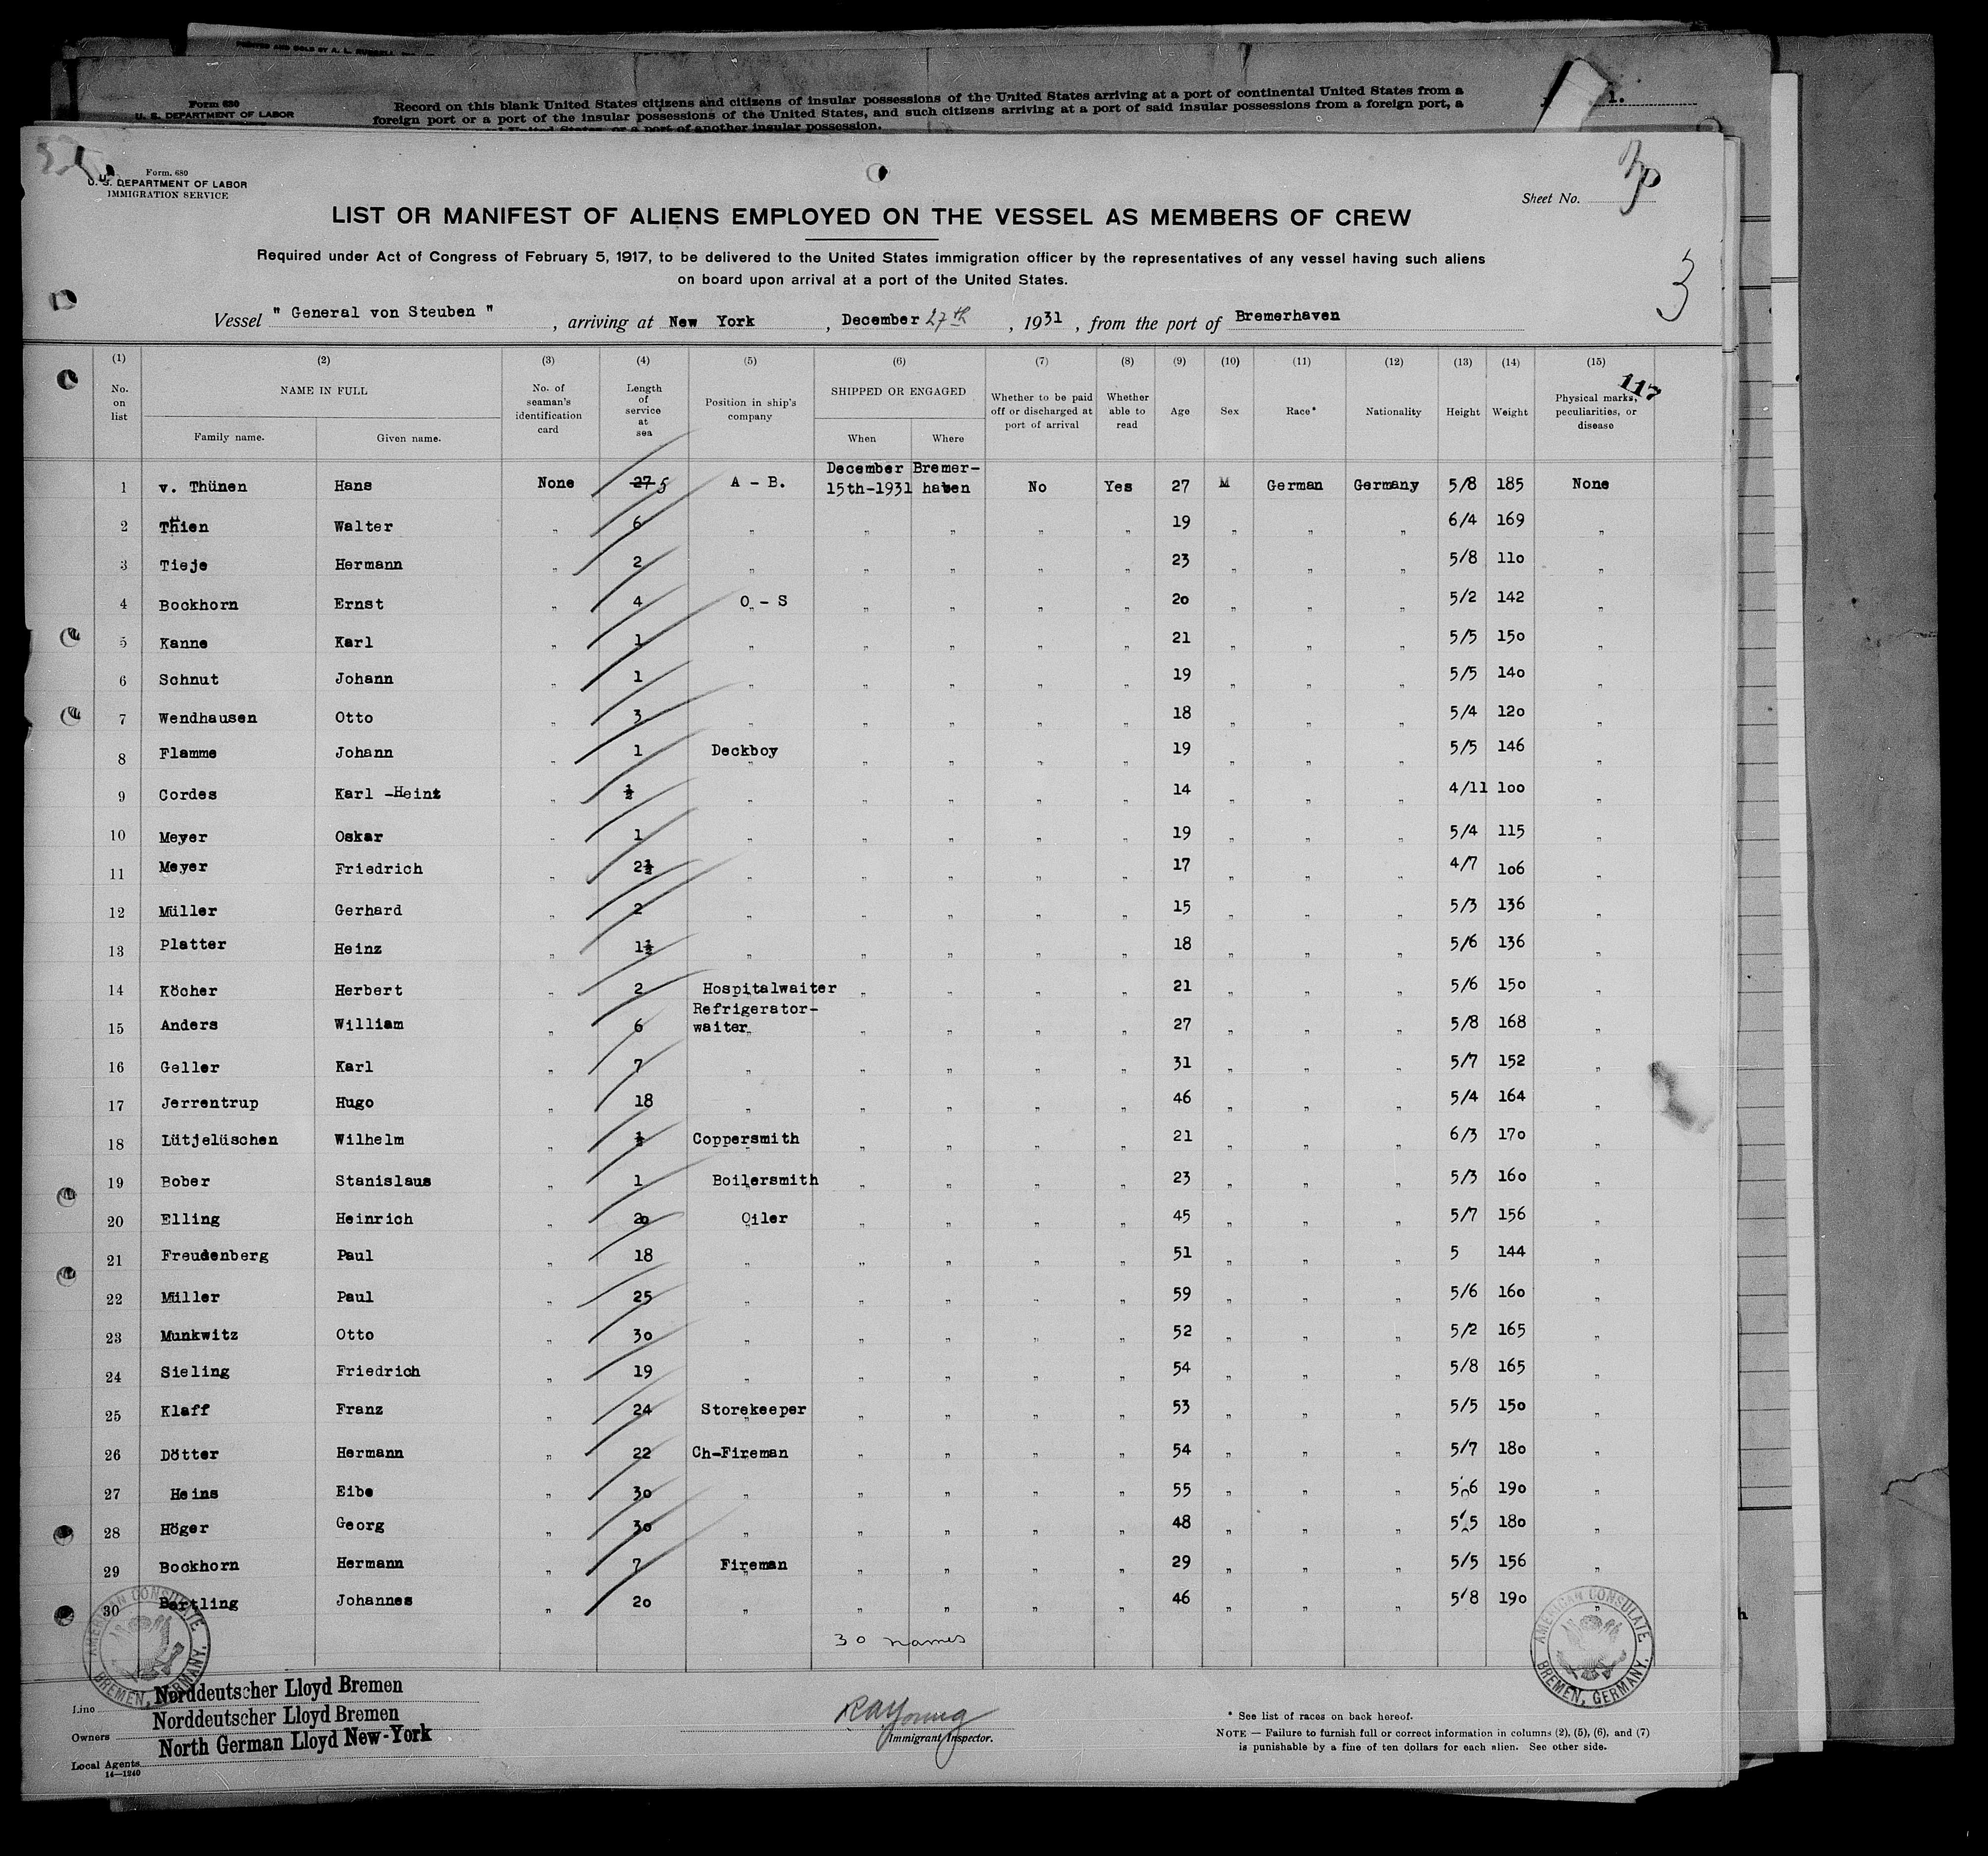 PRINTED AND SOLD BY A. L. RUSSELL
Form 630
U. S. DEPARTMENT OF LABOR
Record on this blank United States citizens and citizens of insular possessions of the United States arriving at a port of continental United States from a
foreign port or a port of the insular possessions of the United States, and such citizens arriving at a port of said insular possessions from a foreign port, a
United States, or a port of another insular possession.
Form. 680
U. S. DEPARTMENT OF LABOR
IMMIGRATION SERVICE
Sheet No.
LIST OR MANIFEST OF ALIENS EMPLOYED ON THE VESSEL AS MEMBERS OF CREW
Required under Act of Congress of February 5, 1917, to be delivered to the United States immigration officer by the representatives of any vessel having such aliens
on board upon arrival at a port of the United States.
3
Vessel " General von Steuben " , arriving at New York , December 27th , 1931 , from the port of Bremerhaven
(1) (2) (3) (4) (5) (6) (7) (8) (9) (10) (11) (12) (13) (14) (15)
117
No. on list NAME IN FULL Family name. Given name. No. of seaman's identification card Length of service at sea Position in ship's company SHIPPED OR ENGAGED When Where Whether to be paid off or discharged at port of arrival Whether able to read Age Sex Race* Nationality Height Weight Physical marks, peculiarities, or disease
1 v. Thünen Hans None 27 5 A - B. December 15th-1931 Bremer-haven No Yes 27 M German Germany 5/8 185 None
2 Thien Walter " 6 " " " " " 19 " " " 6/4 169 "
3 Tieje Hermann " 2 " " " " " 23 " " " 5/8 110 "
4 Bockhorn Ernst " 4 O - S " " " " 20 " " " 5/2 142 "
5 Kanne Karl " 1 " " " " " 21 " " " 5/5 150 "
6 Schnut Johann " 1 " " " " " 19 " " " 5/5 140 "
7 Wendhausen Otto " 3 " " " " " 18 " " " 5/4 120 "
8 Flamme Johann " 1 Deckboy " " " " 19 " " " 5/5 146 "
9 Cordes Karl -Heinz " ½ " " " " " 14 " " " 4/11 100 "
10 Meyer Oskar " 1 " " " " " 19 " " " 5/4 115 "
11 Meyer Friedrich " 2½ " " " " " 17 " " " 4/7 106 "
12 Müller Gerhard " 2 " " " " " 15 " " " 5/3 136 "
13 Platter Heinz " 1½ " " " " " 18 " " " 5/6 136 "
14 Köcher Herbert " 2 Hospitalwaiter " " " " 21 " " " 5/6 150 "
15 Anders William " 6 Refrigerator-waiter " " " " 27 " " " 5/8 168 "
16 Geller Karl " 7 " " " " " 31 " " " 5/7 152 "
17 Jerrentrup Hugo " 18 " " " " " 46 " " " 5/4 164 "
18 Lütjelüschen Wilhelm " ½ Coppersmith " " " " 21 " " " 6/3 170 "
19 Bober Stanislaus " 1 Boilersmith " " " " 23 " " " 5/3 160 "
20 Elling Heinrich " 20 Oiler " " " " 45 " " " 5/7 156 "
21 Freudenberg Paul " 18 " " " " " 51 " " " 5 144 "
22 Müller Paul " 25 " " " " " 59 " " " 5/6 160 "
23 Munkwitz Otto " 30 " " " " " 52 " " " 5/2 165 "
24 Sieling Friedrich " 19 " " " " " 54 " " " 5/8 165 "
25 Klaff Franz " 24 Storekeeper " " " " 53 " " " 5/5 150 "
26 Dötter Hermann " 22 Ch-Fireman " " " " 54 " " " 5/7 180 "
27 Heins Eibe " 30 " " " " " 55 " " " 5'6 190 "
28 Höger Georg " 30 " " " " " 48 " " " 5'5 180 "
29 Bockhorn Hermann " 7 Fireman " " " " 29 " " " 5/5 156 "
30 Bartling Johannes " 20 " " " " " 46 " " " 5'8 190 "
30 names
AMERICAN CONSULATE BREMEN, GERMANY.
AMERICAN CONSULATE BREMEN, GERMANY.
Line Norddeutscher Lloyd Bremen
Owners Norddeutscher Lloyd Bremen
Local Agents North German Lloyd New-York
14—1240
RAYoung
Immigrant Inspector.
* See list of races on back hereof.
NOTE — Failure to furnish full or correct information in columns (2), (5), (6), and (7)
is punishable by a fine of ten dollars for each alien. See other side.